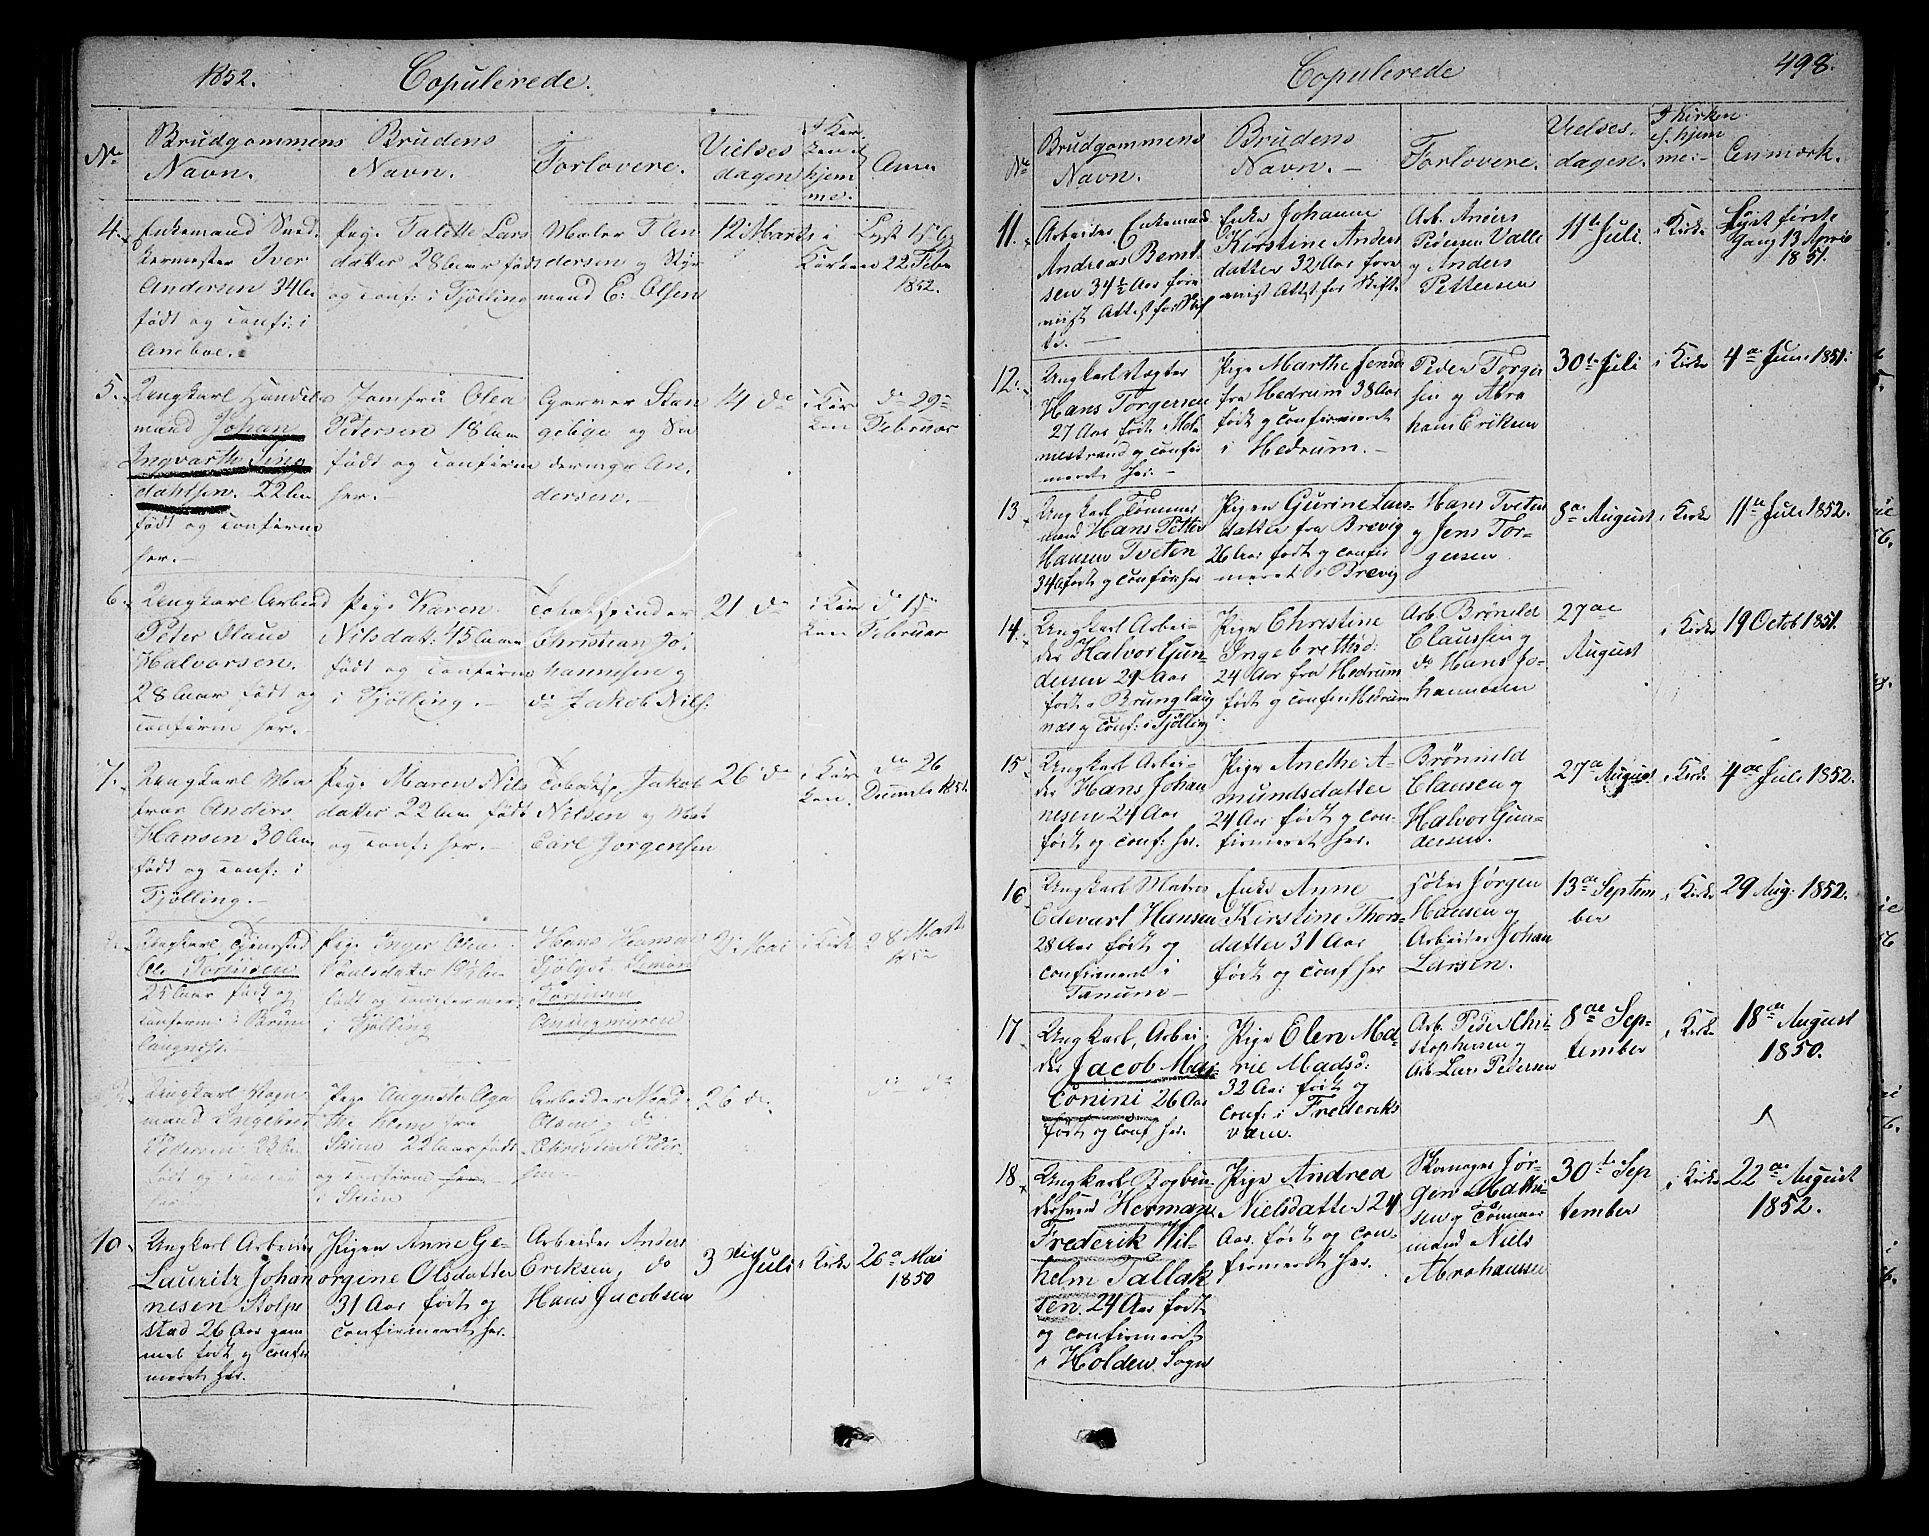 1852. Copulerede.
No
Brudgommens
Navn.
Brudens
Navn.
Forlovere.
Vielses
dagen
I Kir
ken el
hjem
me.
Anm
4.
Enkemand Sned
kermester Iver
Andersen 34 Aar
født og conf: i
Aneboe.
Pige Talette Lars
datter 28 Aar født
og conf: i Tjølling
Maler Flen
dersen og Styr
mand E: Olsen
12 Marts
i
Kirken
Lyst 15 og
22 Febr
1852.
5.
Ungkarl Handels
mand Johan
Ingvarth Sing
dahlsen. 22 Aar
født og confirm
her.-
Jomfru Olea
Petersen 18 Aar
født og confirm
her.-
Garver Stan
gebije og Sn
dermgr An,
dersen.
14 do
i Kir
ken
do 29
Februar
6.
Ungkarl Arbeid
Peter Olaus
Halvorsen.
28 Aar født og
confirm her.-
Pige Karen
Nilsdat: 45 Aar
født og confirm
i Tjølling.-
Tobakspinder
Christian Jo,
hannesen og
do Jakob Nils:
21 do
i Kir
ken
do 15
Februar
7.
Ungkarl Ma
tros Anders
Hansen 30 Aar
født og conf: i
Tjølling.-
Pige Maren Nils
datter 22 Aar født
og conf: her.-
Tobaksp Jakob
Nilsen og Mat
Carl Jørgensen
26 do
i Kir
ken.
den 26
Decembr 1851.
Ungkarl
Ole
25 Aar født og
confirm: i Brun
laugnæs.
Pige Inger Olea
Paulsdatter 19½ Aar
født og confirmer
i Tjølling
Hans Hansen
Simon
2 Mai
i Kirk
28 Marts
1852
Ungkarl Vogn
mand Ingebret
Pedersen 23 Aar
født og confirm
her.
Pige Auguste Aga
the
fra
Skien 22 Aar født
og confirm her
i Skien
Arbeider Mads
Olsen og do
Christian Peder
sen
26 do.
do do
10.
Ungkarl Arbeider
Lauritz Johan
nesen Stolpe
stad 26 Aar gam
mel født og confir
meret her.
Pigen Anne Ge-
orgine Olsdatter
31 Aar født og
confirmeret her.
Arbeider Anders
Eriksen, do
Hans Jacobsen
3 die Juli
i Kirk
26 Mai
1850
Copulerede 498.
No
Brudgommens
Navn.
Brudens
Navn.-
Forlovere.
Vielses-
dagen.
I Kirken
el. hjem
me:-
Anmærk.
11.
Arbeider Enkemand
Andreas Bernt
sen 34½ Aar fore
vist Attest for Skif
te.-
Enke Johanne
Kirstine Anders
datter 32 Aar fore
vist Attest for Skifte
Arb. Anders
Pedersen Valle
og Anders
Pettersen
11te Juli.
i Kirke
Lyst første
Gang 13 April
1851.
12.
Ungkarl Vægter
Hans Torgersen
27 Aar født i Hol
mestrand og confir
meret her.-
Pige Marthe Jensd
fra Hedrum 38 Aar
født og confirmeret
i Hedrum.-
Peder Torger
sen og Abra
ham Eriksen
30te Juli
i Kirke
4de Juni 1851.
13
Ungkarl Tømmer
mand Hans Petter
Hansen Tveten
34 Aar født og confir her
Pigen Gurine Lars-
datter fra Brevig
26 Aar født og confir
meret i Brevig
Hans Tveten
og Jens Tor-
gersen
8de August
i Kirke
11te Juli 1852.
14.
Ungkarl Arbei-
der Halvor Gun-
dersen 29 Aar
født i Brunglaug
næs og conf: i Tjølling
Pige Christine
Ingebretsd:
24 Aar fra Hedrum
født og confir: Hedrum
Arb. Brønild
Claussen og
do Hans Jo-
hannesen
27de
August
i Kirke
19 Octob 1851.
15
Ungkarl Arbei-
der Hans Johan
nesen 24 Aar
født og conf: her.
Pige Anethe A-
mundsdatter
24 Aar født og con-
firmeret her.
Brønnild
Clausen og
Halvor Gun-
dersen.
27de August
i Kirke
4de Juli 1852.
16
Ungkarl Matros
Edevart Hansen
28 Aar født og
confirmeret i
Tanum-
Enke Anne
Kirstine Thors-
datter 31 Aar
født og conf her
Jørgen
Hansen og
Arbeider Johan
Larsen.
13de Septem
ber
i Kirke
29 Aug. 1852.
17
Ungkarl, Arbei-
der Jacob Mar-
conini 26 Aar
født og conf her.
Pige Elen Ma-
rie Madsd:
32 Aar født og
conf: i Frederiks
værn.
Arb. Peder Chri-
stophersen og
Arb Lars Pedersen
8de Sep-
tember
i Kirke
18de August
1850.
18
Ungkarl Bogbin-
dersvend Herman
Frederik Wil-
helm Tallak
sen. 24 Aar født
og confirmeret
i Holden Sogn
Pige Andrea
Nielsdatter 24
Aar. født og con-
firmeret her.
Skomager Jør-
gen Mathi-
sen og Tømmer
mand Niels
Abrahamsen
30te Sep
tember
i Kirke
22de August
1852.